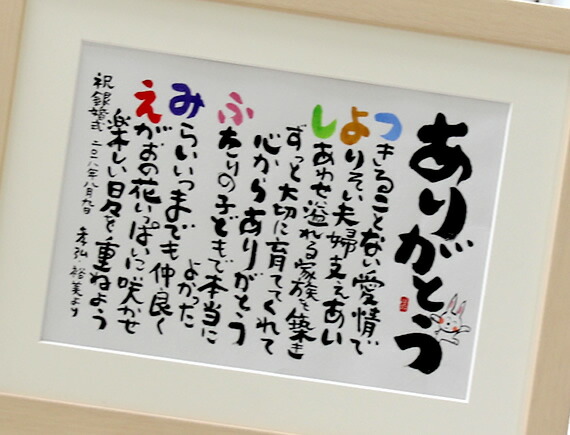 ありがとう
つきることない愛情で
よりそい夫婦支えあい
しあわせ溢れる家族を築き
ずっと大切に育ててくれて
心からありがとう
ふたりの子どもで本当に
よかった
みらいいつまでも仲良く
えがおの花いっぱいに咲かせ
楽しい日々を重ねよう
祝銀婚式 二〇一八年八月九日 孝弘・裕美より